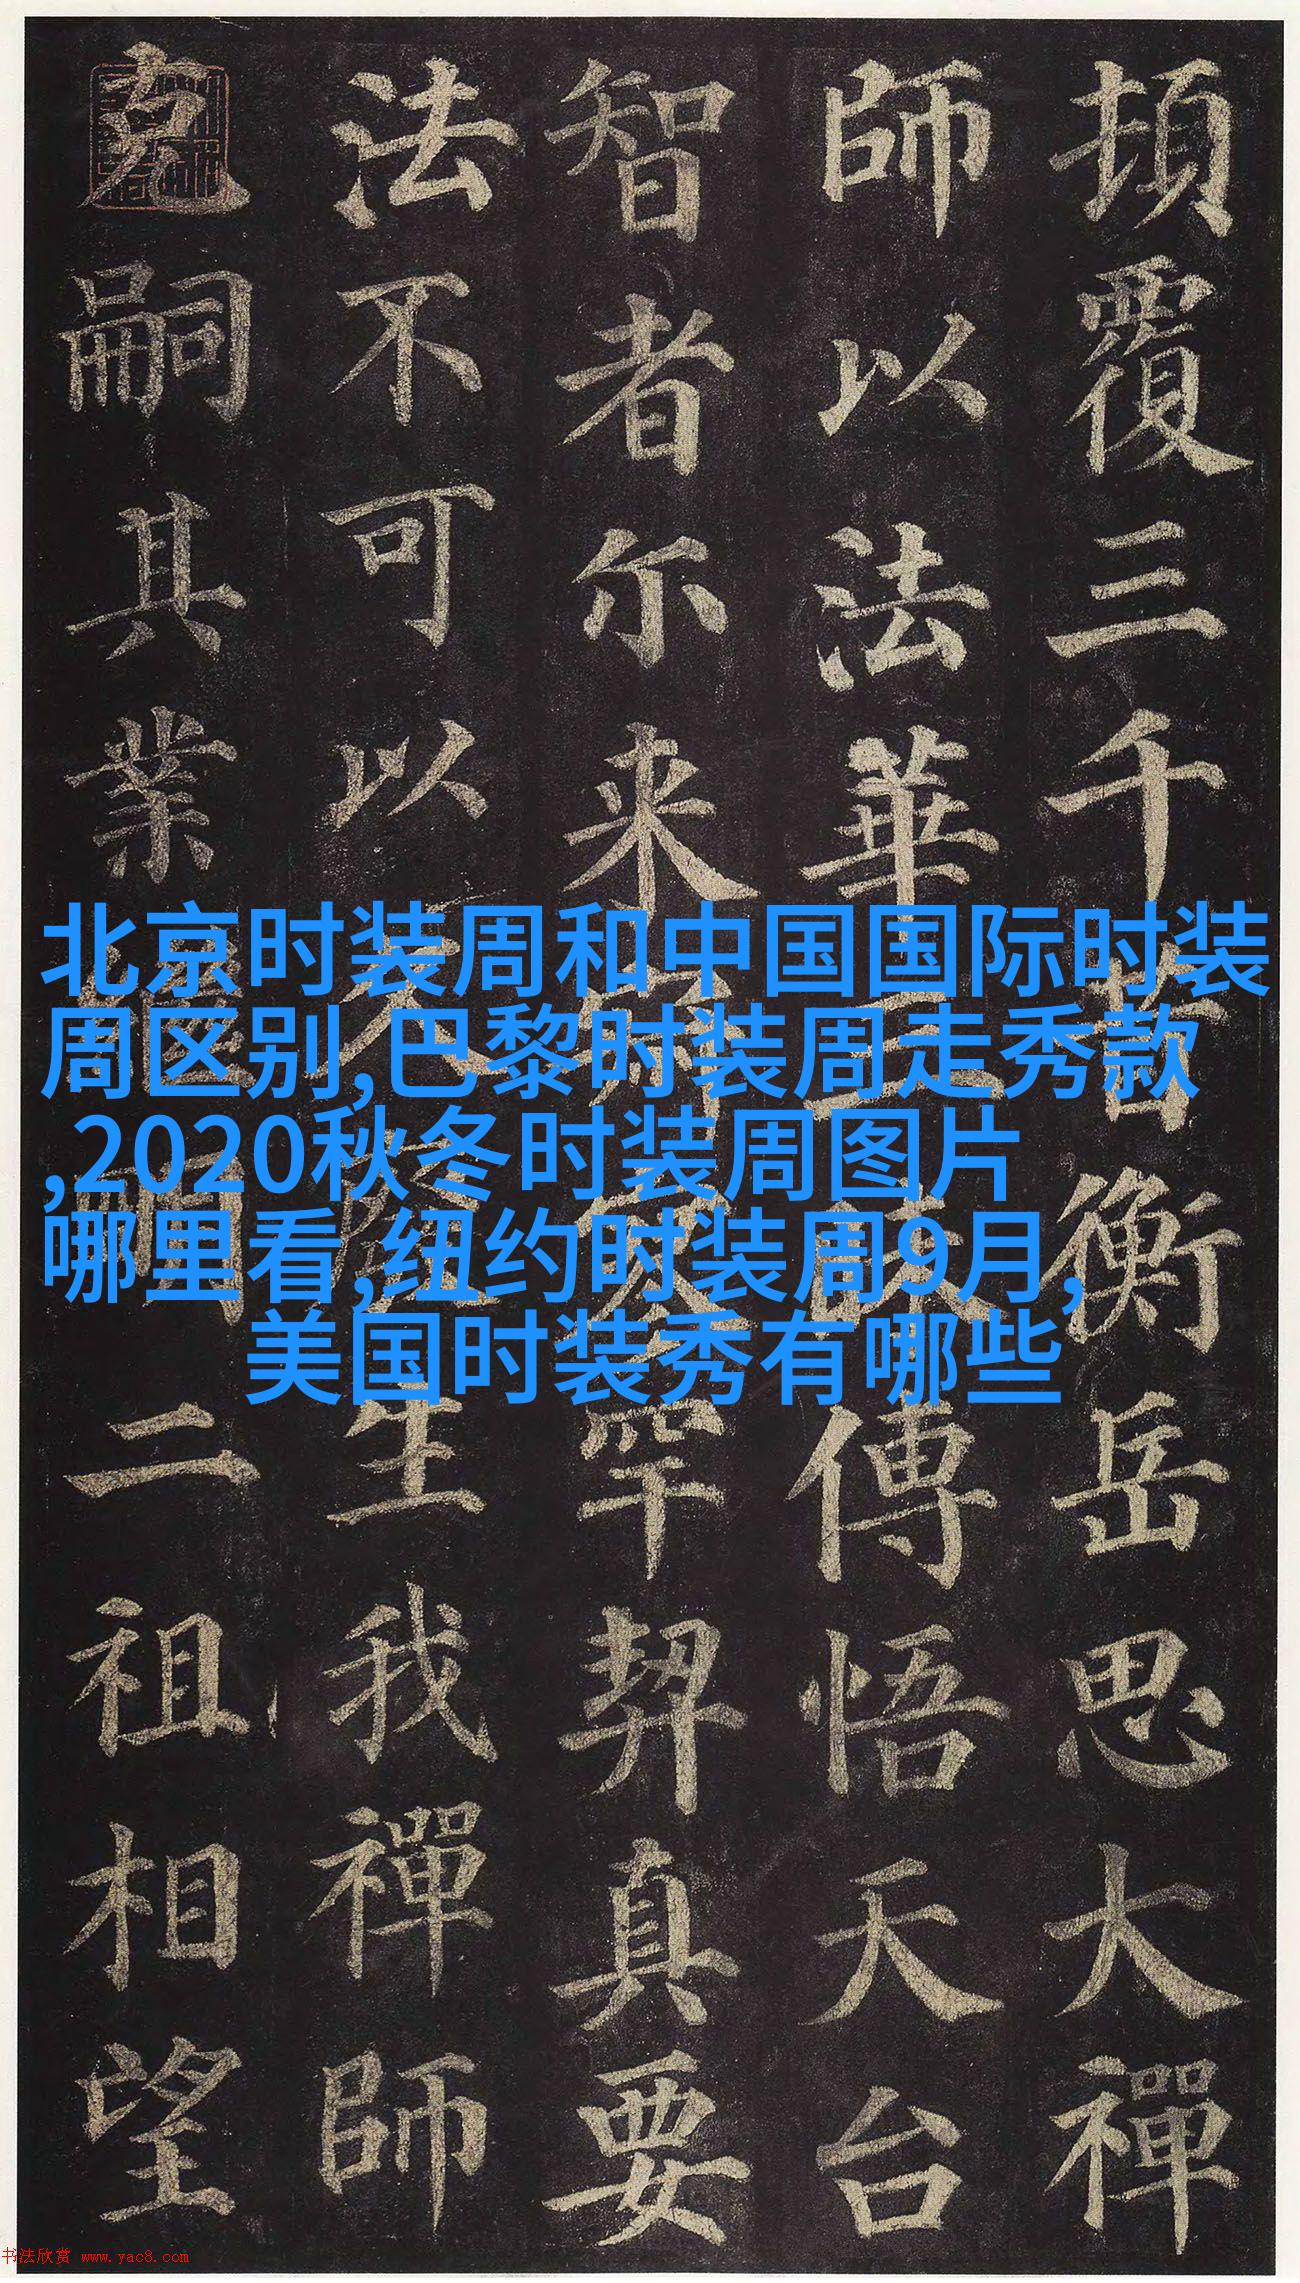 北京时装周和中国国际时装
周区别,巴黎时装周走秀款
,2020秋冬时装周图片
哪里看,纽约时装周9月,
美国时装秀有哪些
頂覆三千昔衡岳思大禪
師以法華三昧傳悟天台
智者尔来寂寥罕契真要
法不可以久生我禪師
克嗣其業繼明二祖相望
书法欣赏 www.yac8.com